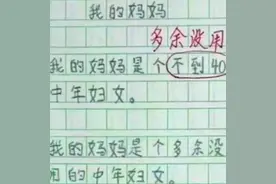 我的妈妈
多余没用
我的妈妈是个不到40
中年妇女。
我的妈妈是个多余没
用的中年妇女。